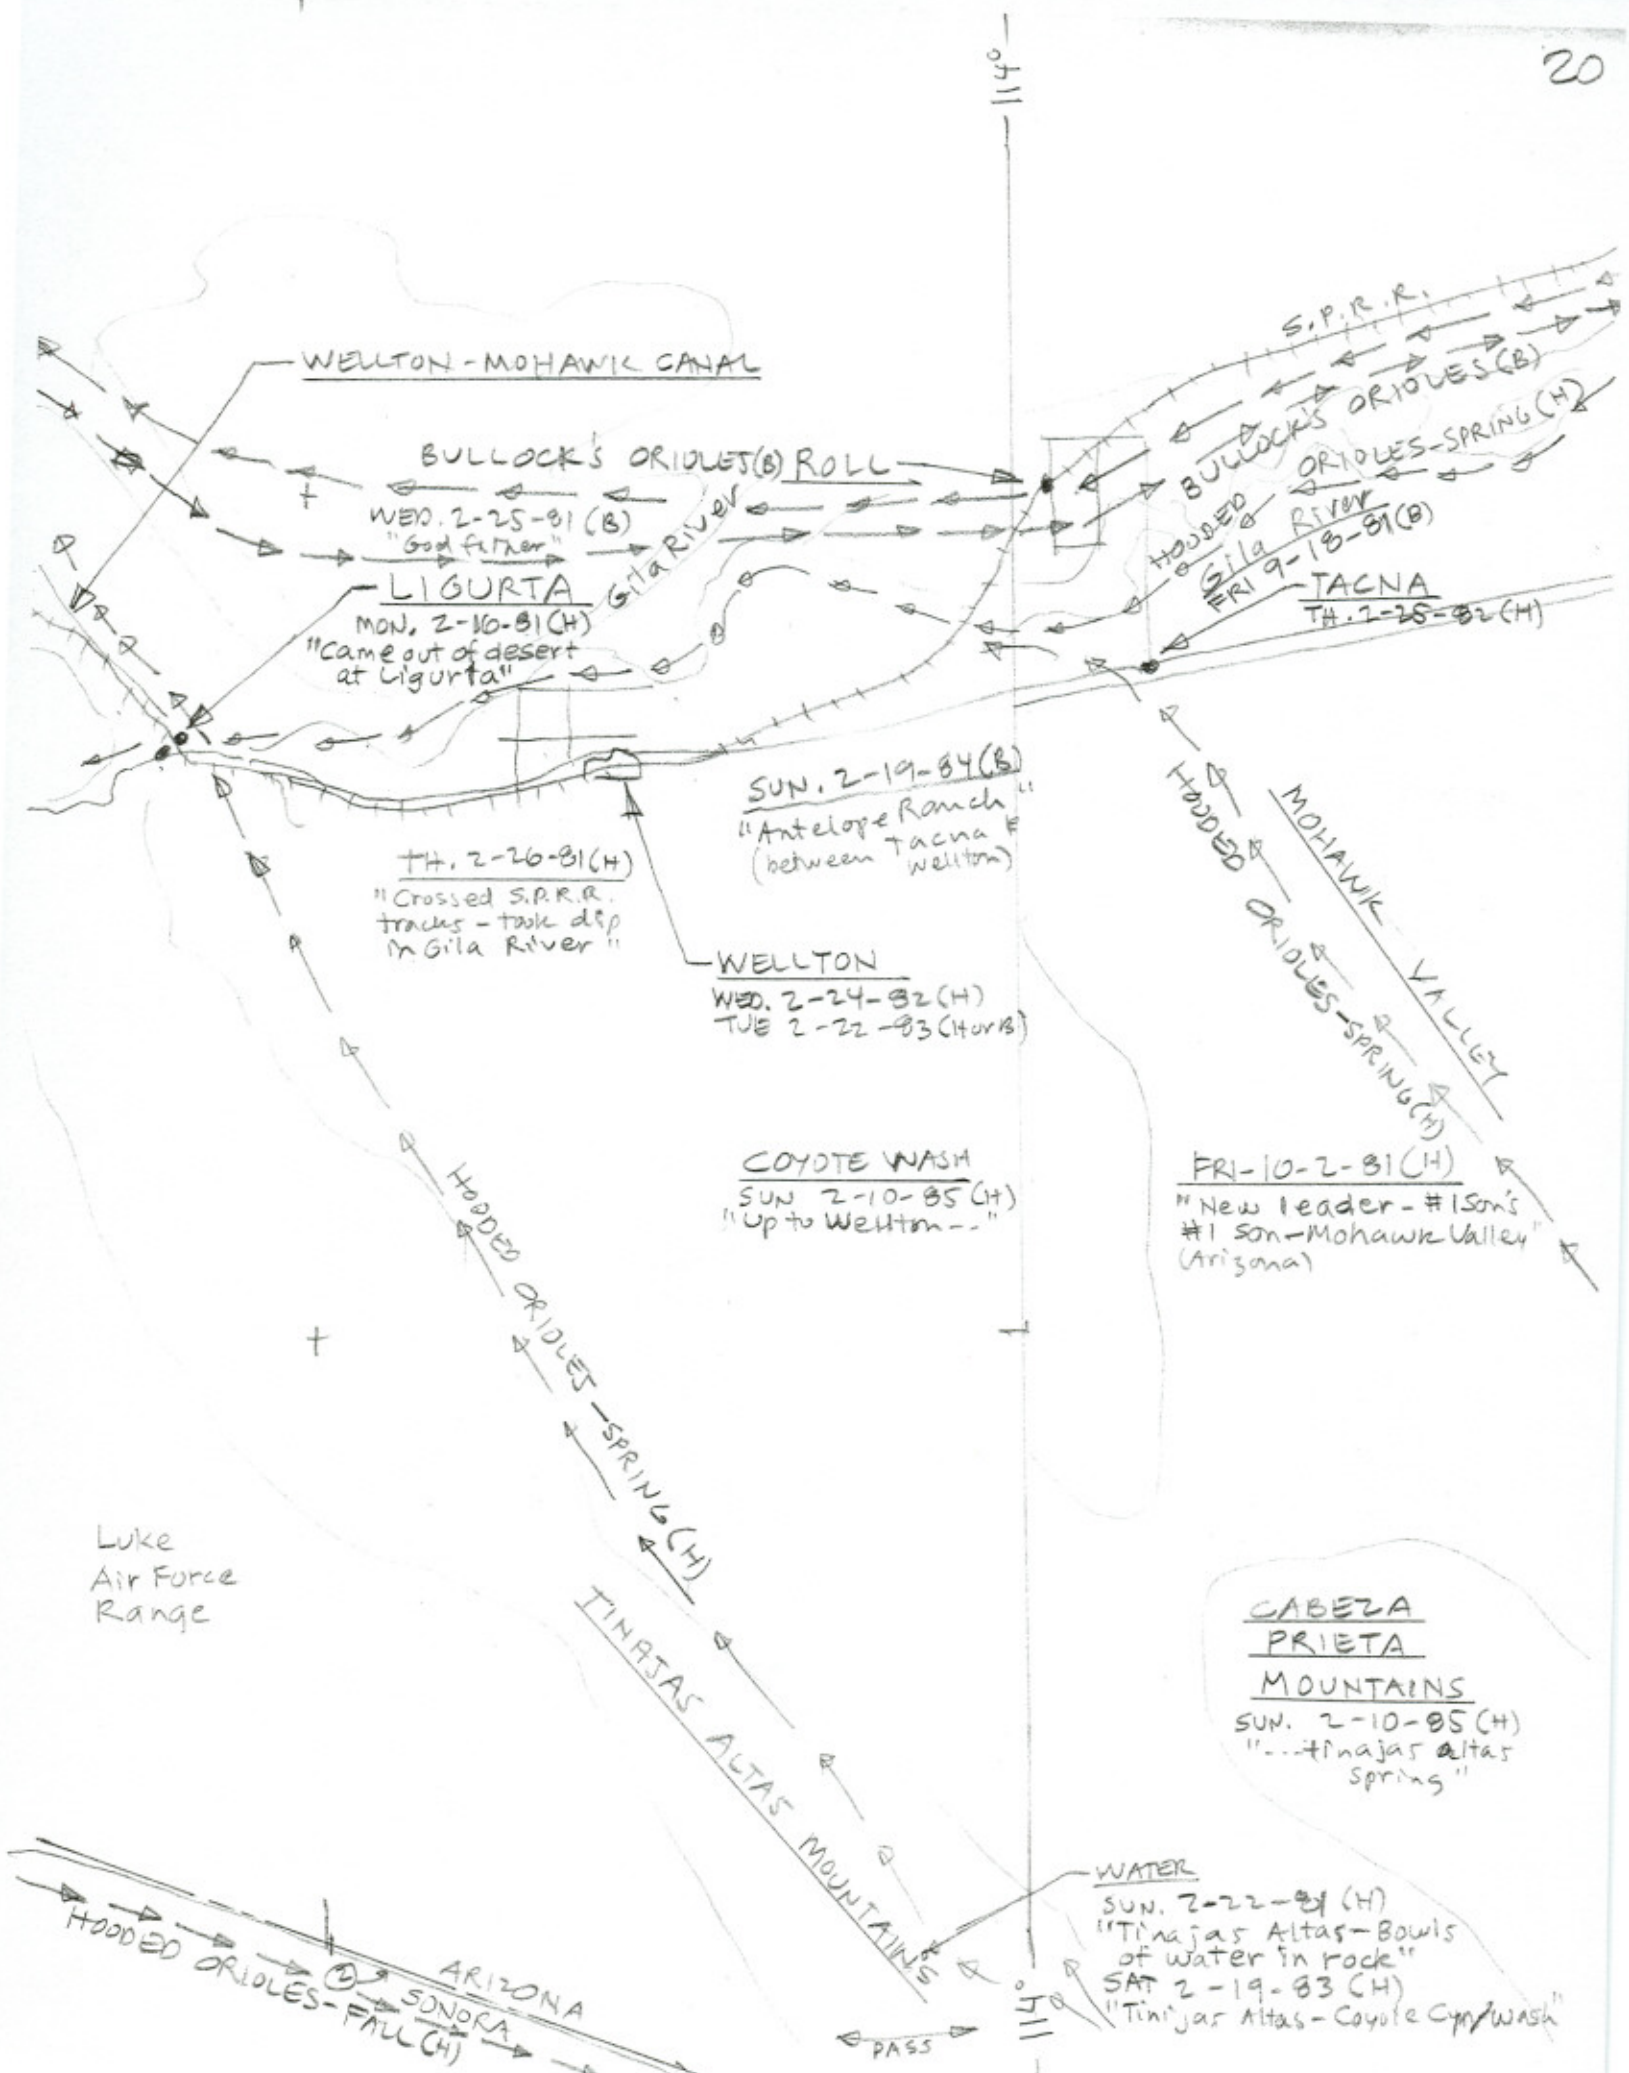 20
114°
S.P.R.R.
WELLTON-MOHAWK CANAL
BULLOCK'S ORIOLES(B)
BULLOCK'S ORIOLES(B) ROLL
HOODED ORIOLES-SPRING(H)
WED. 2-25-81(B)
"God father"
Gila River
Gila River
FRI 9-18-81(B)
LIGURTA
MON. 2-16-81(H)
"Came out of desert
at Ligurta"
TACNA
TH. 2-25-82(H)
SUN. 2-19-84(B)
"Antelope Ranch"
(between Tacna &
Wellton)
TH. 2-26-81(H)
"Crossed S.P.R.R.
tracks - took dip
in Gila River"
HOODED ORIOLES-SPRING(H)
MOHAWK VALLEY
WELLTON
WED. 2-24-82(H)
TUE 2-22-83(H or B)
HOODED ORIOLES-SPRING(H)
COYOTE WASH
SUN 2-10-85(H)
"Up to Wellton--"
FRI-10-2-81(H)
"New leader-#1 Son's
#1 son-Mohawk Valley"
(Arizona)
Luke
Air Force
Range
TINAJAS ALTAS MOUNTAINS
CABEZA
PRIETA
MOUNTAINS
SUN. 2-10-85(H)
"---tinajas altas
spring"
WATER
SUN. 2-22-81(H)
"Tinajas Altas-Bowls
of water in rock"
SAT 2-19-83(H)
"Tinijas Altas-Coyote Cyn/Wash"
HOODED ORIOLES-FALL(H)
2
ARIZONA
SONORA
PASS
114°